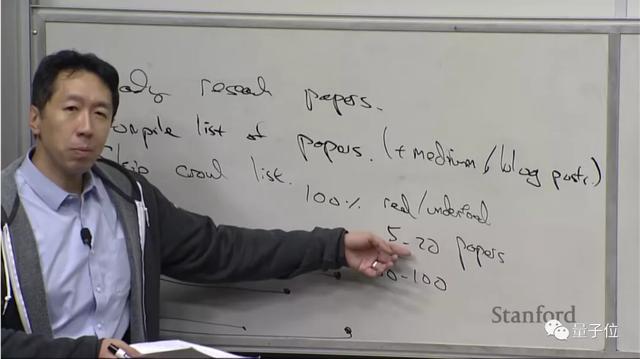 research papers.
compile list of papers. (+ medium/blog posts.)
Skip around list.
100% read/understand
5-20 papers
50-100
Stanford
量子位